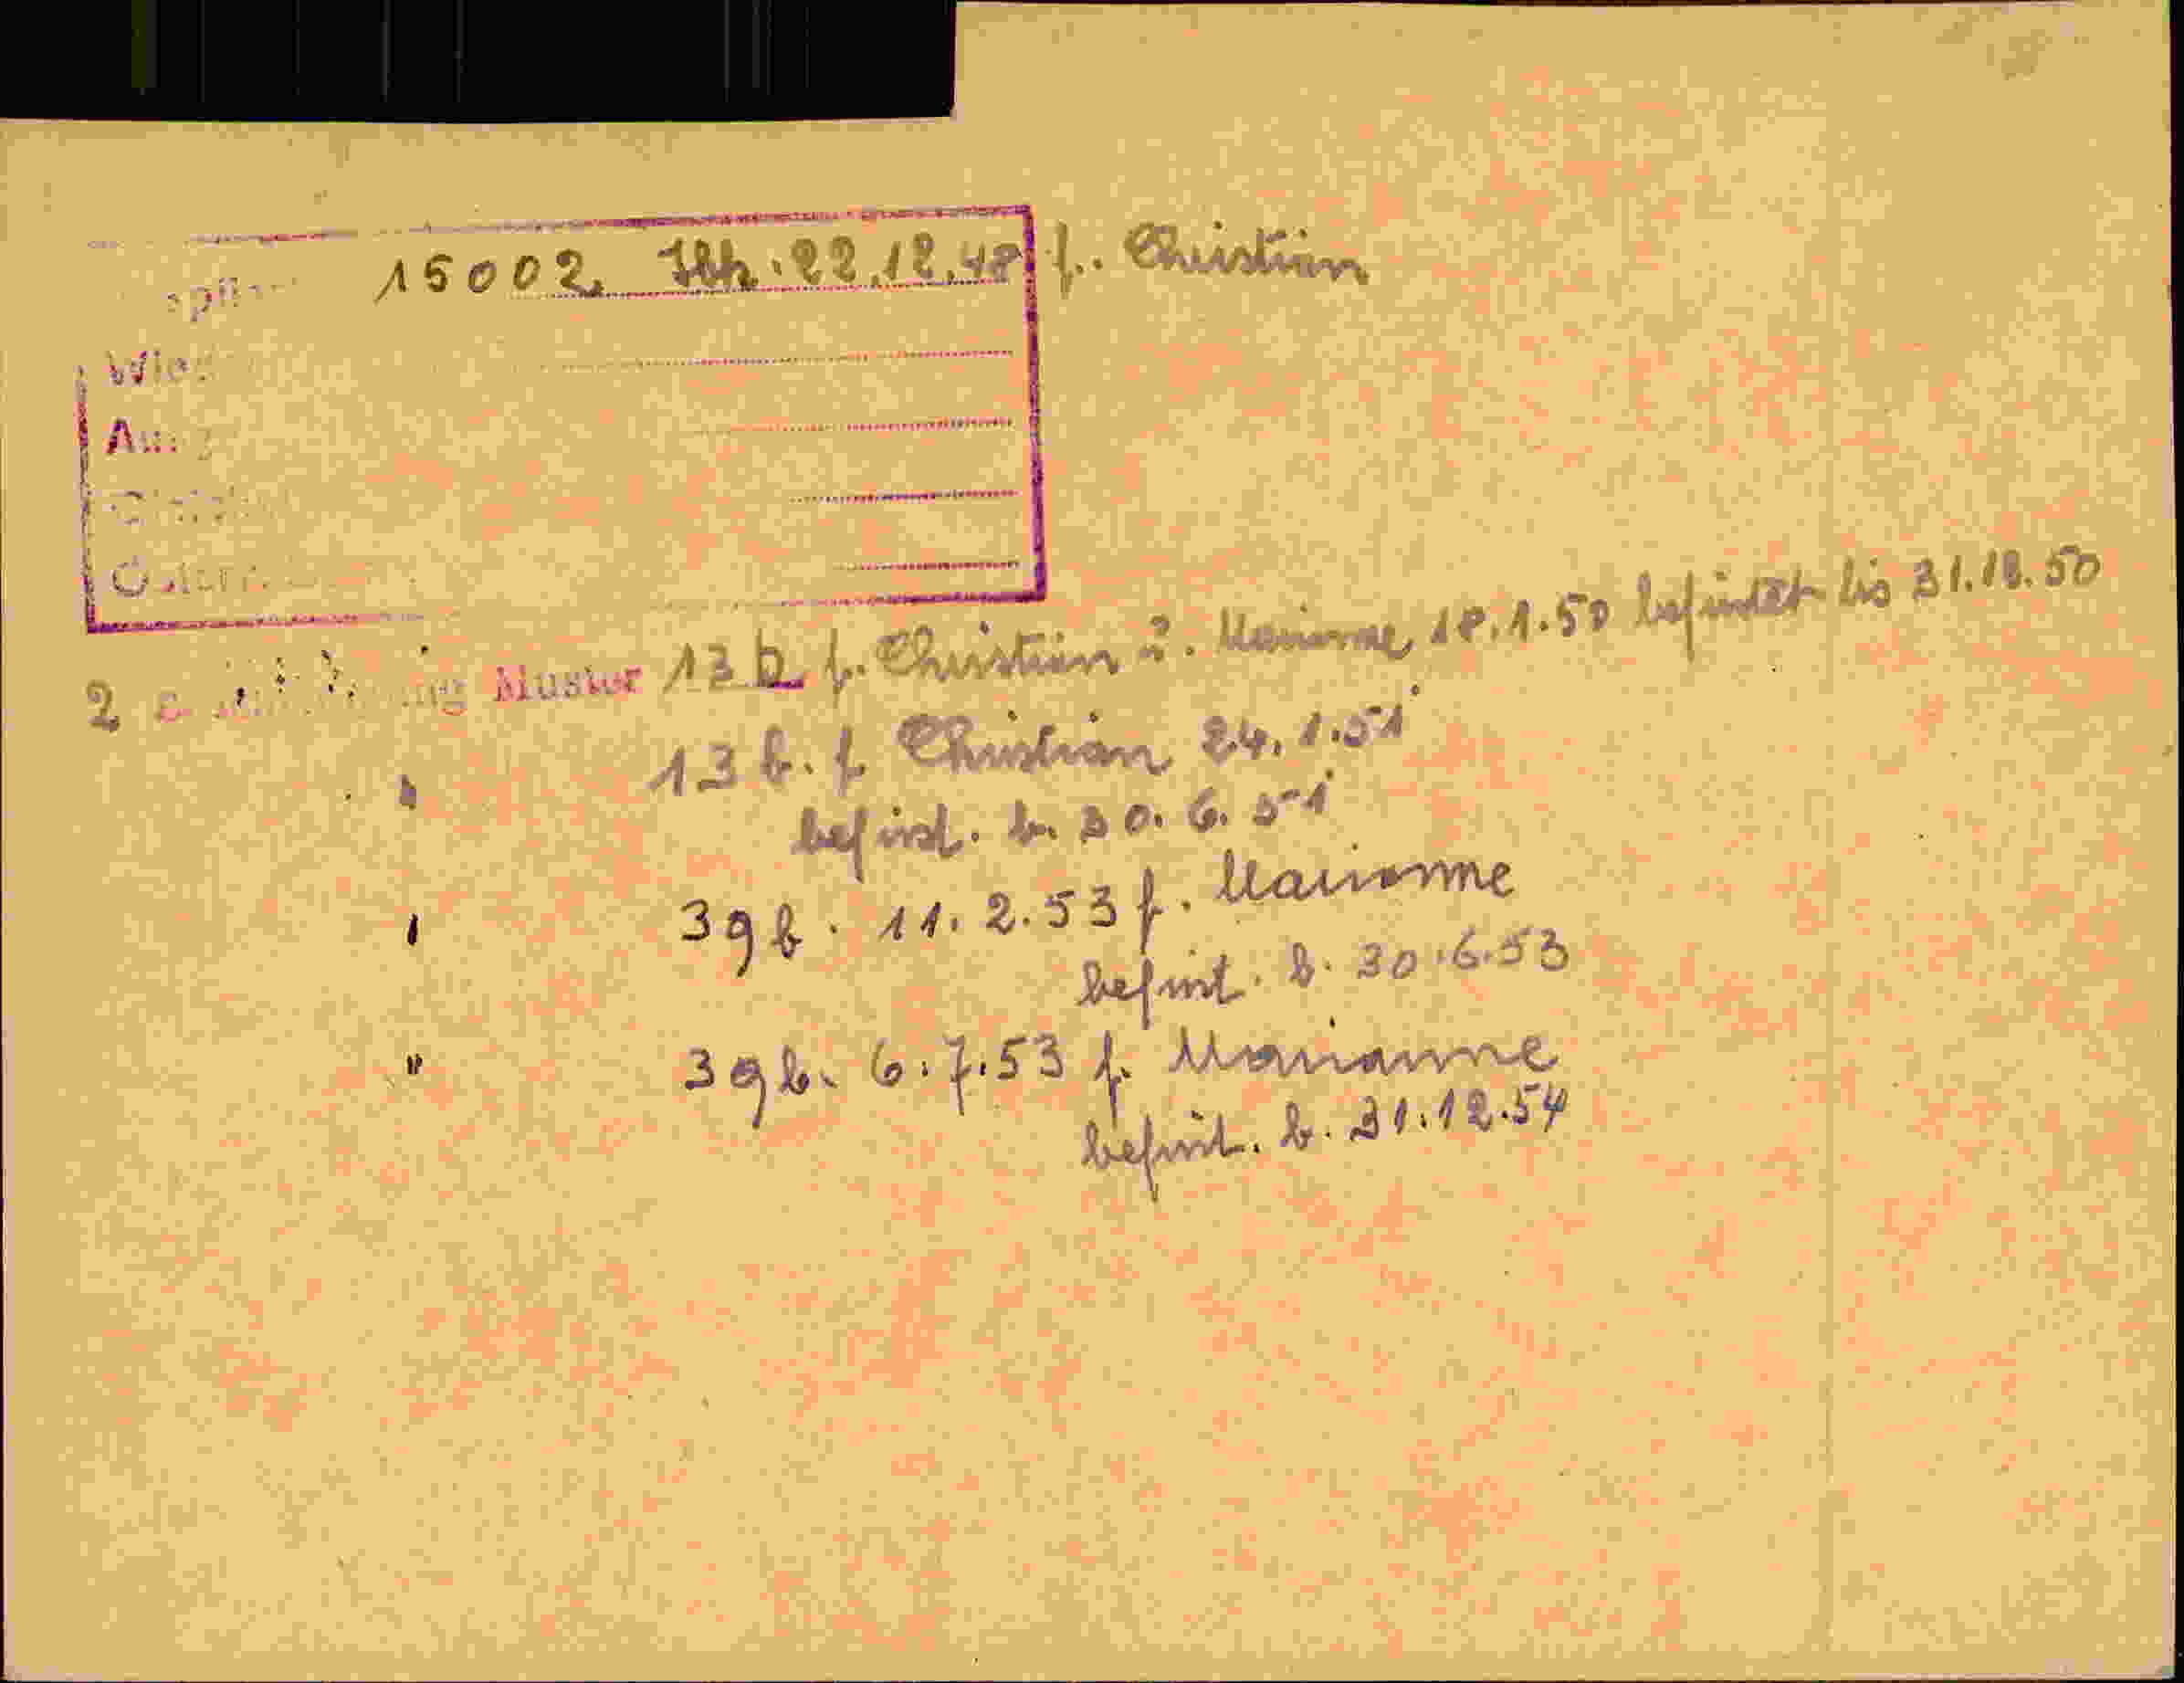 15002 Jhh. 22.12.48 f. Christian
2 Muster 13 b f. Christian ü. Marianne 18.1.50 befristet bis 31.12.50
13 b. f. Christian 24.1.51
befrist. b. 30.6.51
39b. 11.2.53 f. Marianne
befrist. b. 30.6.53
" 39b. 6.7.53 f. Marianne
befrist. b. 31.12.54